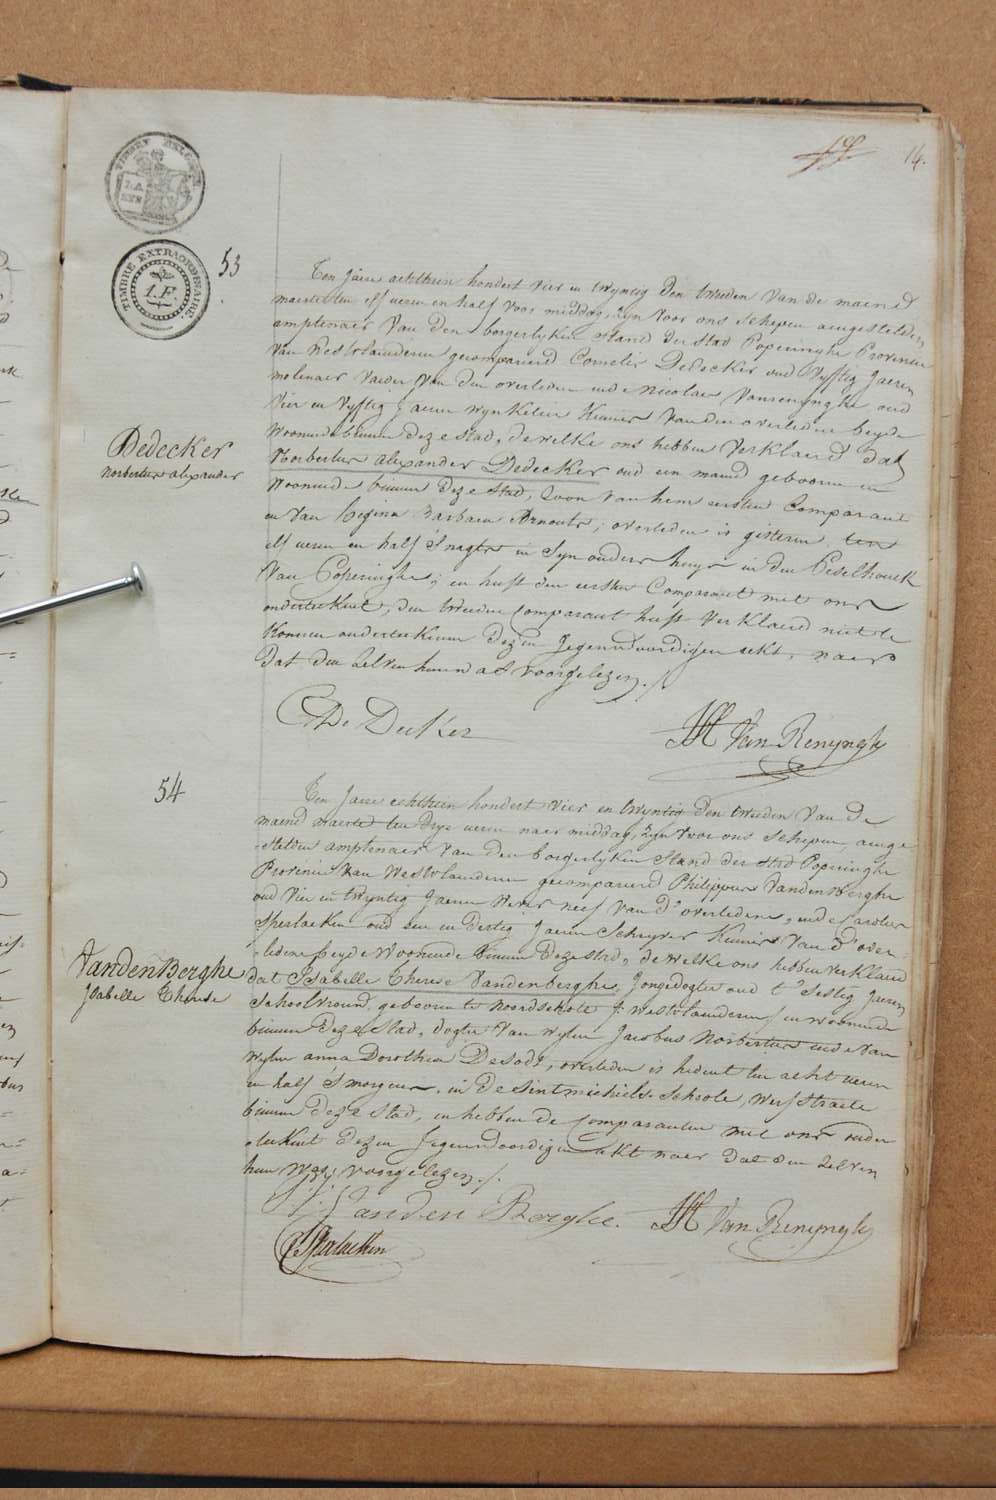 14.
TIMBRE EXTRAORDINAIRE
1.F.
53
Ten Jaere achthien hondert vier en twyntig den tweeden van de maend
maerte ten elf ueren en half voor middag, zyn voor ons schepen aengestelden
amptenaer van den borgerlyken stand der stad Poperinghe Provincie
van Westvlaenderen gecompareerd Cornelis Dedecker oud vyftig Jaeren
molenaer vaeder van den overleden ende Nicolaes Vanrenynghe oud
vier en vyftig Jaeren wynkelier kennis van den overleden beyde
woonende binnen deze stad, de welke ons hebben verklaerd dat
Norbertus alexander Dedecker oud een maend gebooren en
woonende binnen deze stad, zoon van hem eersten Comparant
en van Regina Barbara Arnouts, overleden is gisteren ten
elf ueren en half s'nagts in syn ouders huys in den Eeselhouck
van Poperinghe; en heeft den eersten Comparant met ons
onderteekent, den tweeden comparant heeft verklaerd niet te
konnen onderteekenen dezen Jegenwoordigen ackt, naer
dat den zelven hun is voorgelezen./.
Dedecker
Norbertus alexander
De Decker
Van Renyngh
54
Ten Jaere achthien hondert vier en twyntig den tweeden van de
maend maerte ten drye ueren naer middag, zyn voor ons schepen, aenge
stelden amptenaer van den borgerlyken stand der stad Poperinghe
Provincie van Westvlaenderen gecompareerd Philippus Vandenberghe
oud vier en twyntig Jaeren wever neef van d'overledene, ende Carolus
Sperlaeken oud een en dertig Jaeren Schryver kennis van d'over
ledene beyde woonende binnen deze stad, de welke ons hebben verklaerd
dat Isabelle Therese Vandenberghe, Jongedogter oud t'sestig Jaeren
Schoolvrouw, gebooren te Noordschote / Westvlaenderen / en woonende
binnen deze stad, dogter van wylen Jacobus Norbertus ende van
wylen anna Dorothea Desodt, overleden is heden ten acht ueren
en half s'morgens, in de Sint michiels schoole, werf straete
binnen deze stad, en hebben de comparanten met ons onder
teekent dezen Jegenwoordigen ackt naer dat den zelven
hun was voorgelezen./.
VandenBerghe
Isabelle Therese
Vanden Berghe.
Sperlaeken
Van Renyngh